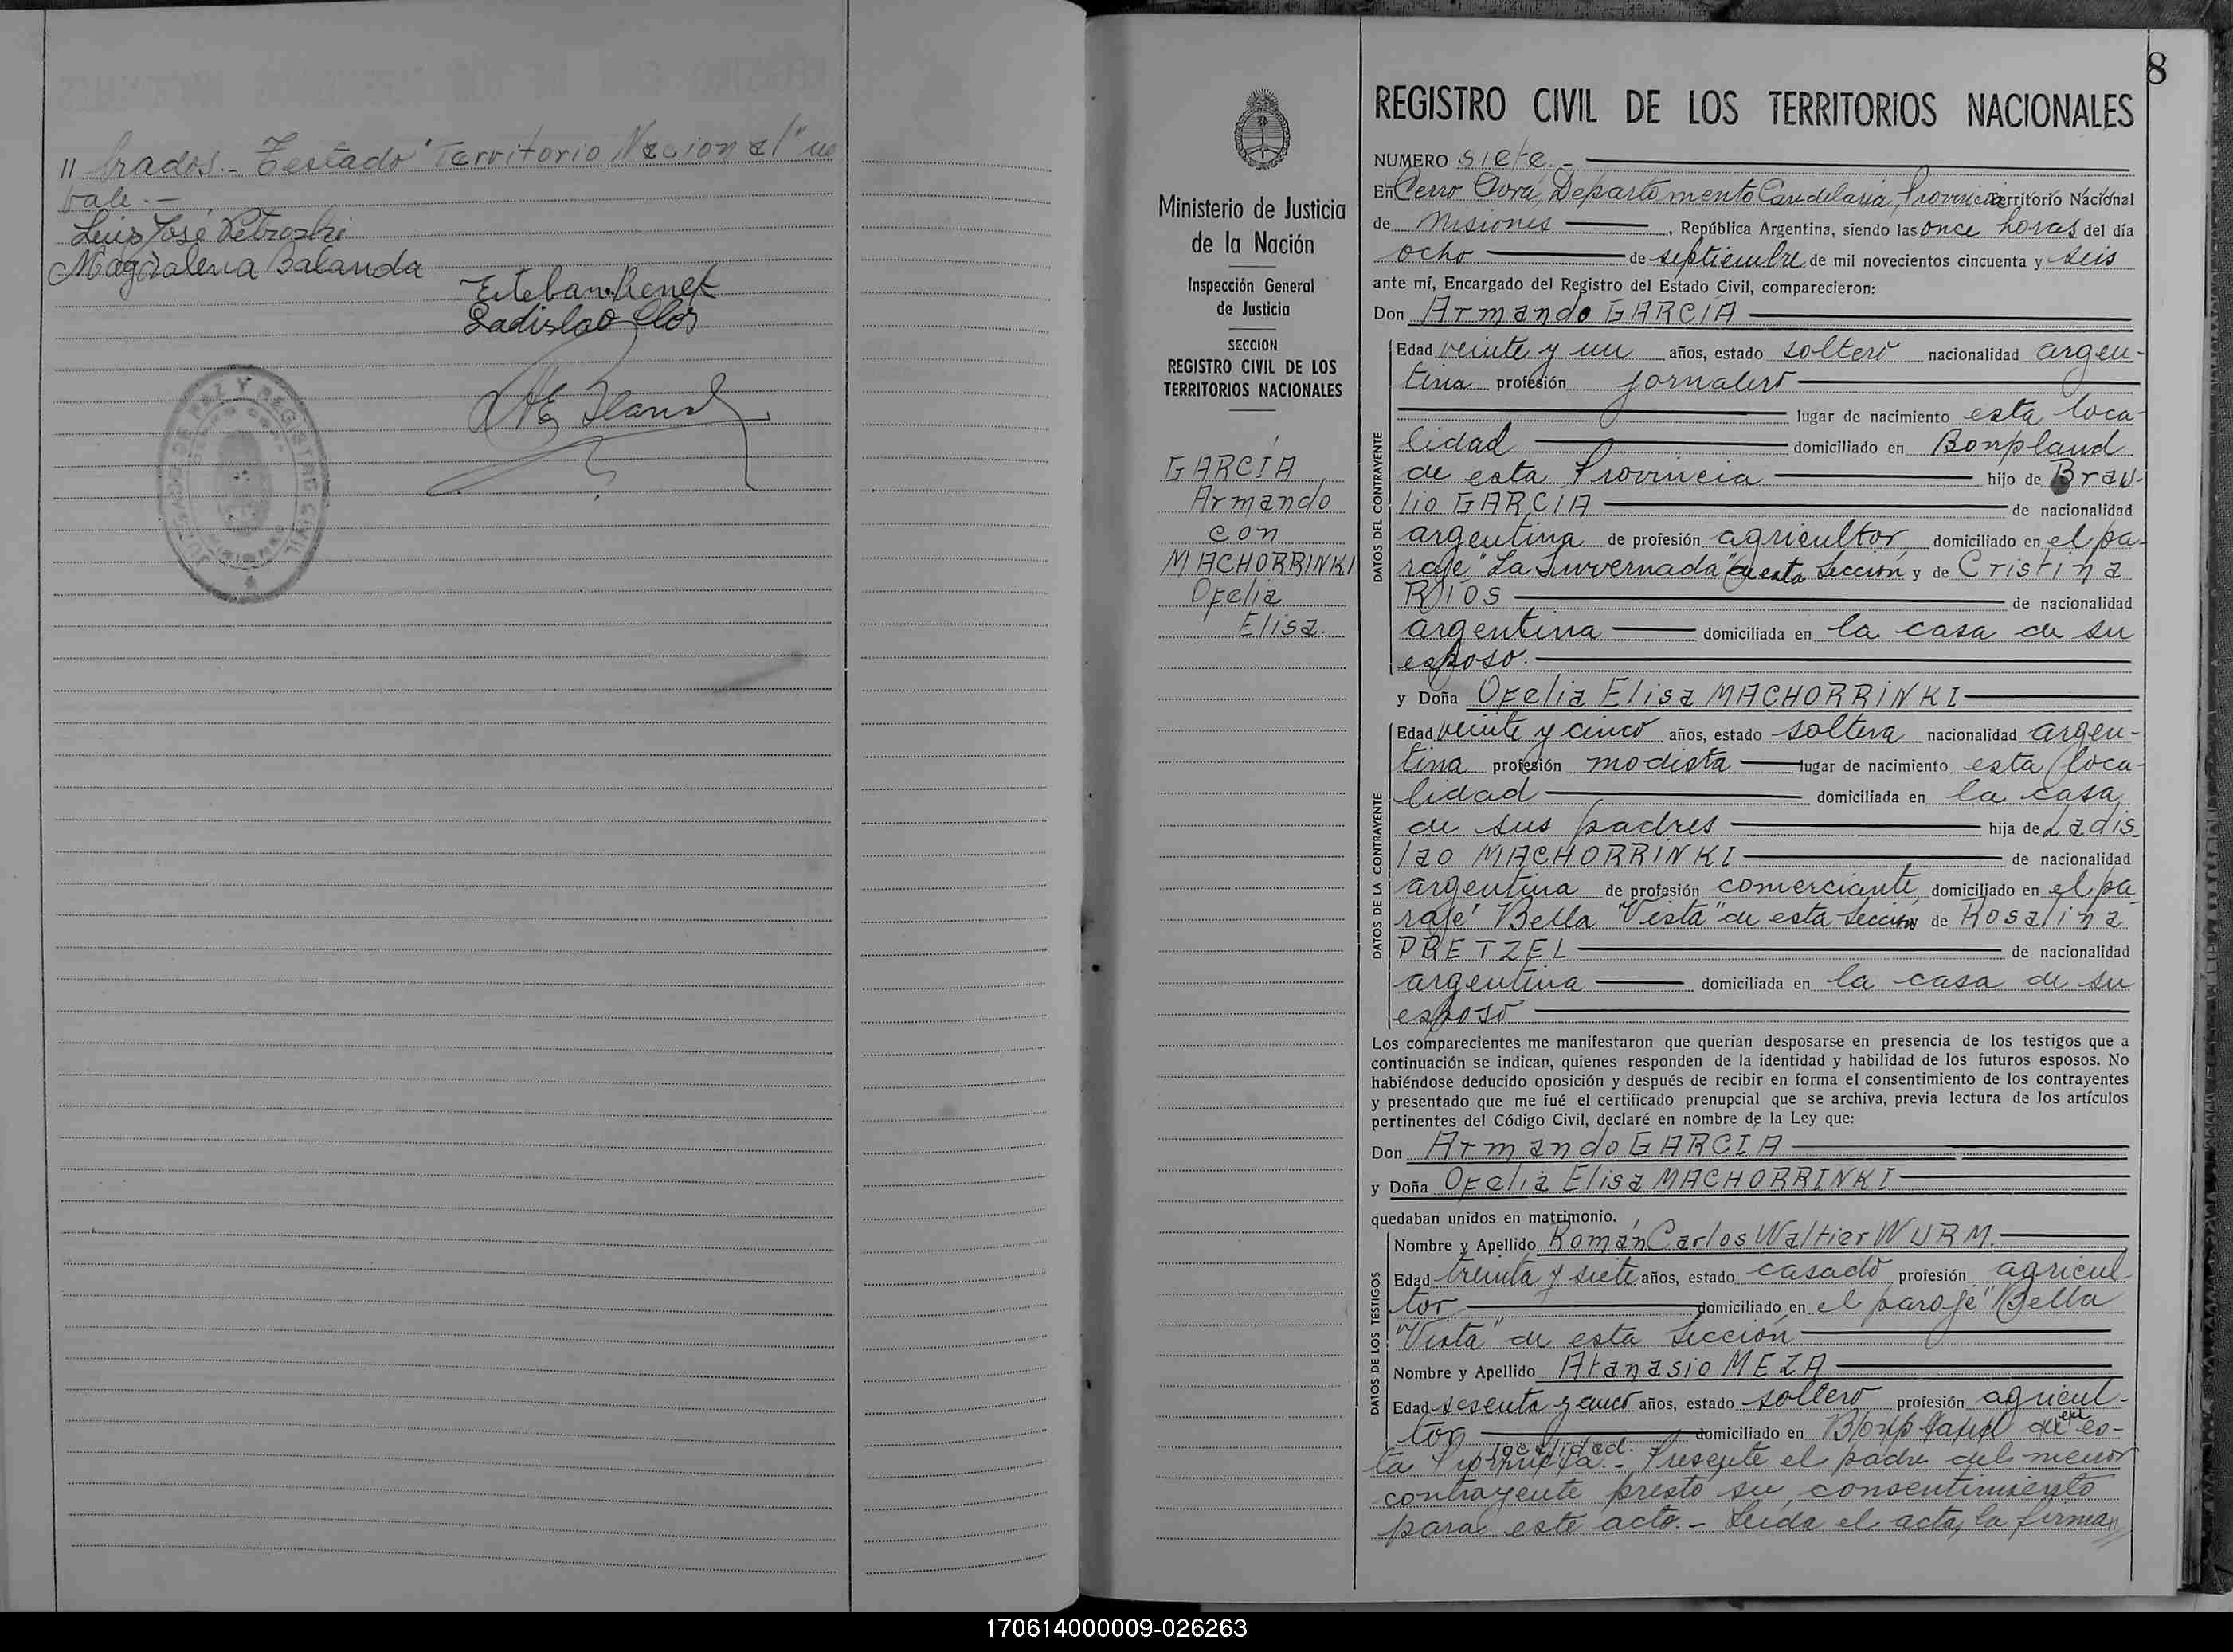 // brados.- Testado "Territorio Nacional" no
vale.-
Luis José Petroski
Magdalena Balanda
Esteban Benek
Ladislao Clos
8
REGISTRO CIVIL DE LOS TERRITORIOS NACIONALES
Ministerio de Justicia
de la Nación
Inspección General
de Justicia
SECCION
REGISTRO CIVIL DE LOS
TERRITORIOS NACIONALES
GARCÍA
Armando
con
MACHORRINKI
Ofelia
Elisa.
NUMERO siete.-
En Cerro Corá, Departamento Candelaria, Provincia Territorio Nacional
de Misiones, República Argentina, siendo las once horas del día
ocho de septiembre de mil novecientos cincuenta y seis
ante mí, Encargado del Registro del Estado Civil, comparecieron:
Don Armando GARCIA
DATOS DEL CONTRAYENTE
Edad veinte y un años, estado soltero nacionalidad argen-
tina profesión jornalero
lugar de nacimiento esta loca-
lidad domiciliado en Bonpland
de esta Provincia hijo de Brau-
lio GARCIA de nacionalidad
argentina de profesión agricultor, domiciliado en el pa-
raje "La Invernada" de esta sección y de Cristina
RIOS de nacionalidad
argentina domiciliada en la casa de su
esposo.
y Doña Ofelia Elisa MACHORRINKI
DATOS DE LA CONTRAYENTE
Edad veinte y cinco años, estado soltera nacionalidad argen-
tina profesión modista lugar de nacimiento esta loca-
lidad domiciliada en la casa
de sus padres hija de Ladis-
lao MACHORRINKI de nacionalidad
argentina de profesión comerciante, domiciliado en el pa-
raje "Bella Vista" de esta sección de Rosalina
PRETZEL de nacionalidad
argentina domiciliada en la casa de su
esposo
Los comparecientes me manifestaron que querían desposarse en presencia de los testigos que a
continuación se indican, quienes responden de la identidad y habilidad de los futuros esposos. No
habiéndose deducido oposición y después de recibir en forma el consentimiento de los contrayentes
y presentado que me fué el certificado prenupcial que se archiva, previa lectura de los artículos
pertinentes del Código Civil, declaré en nombre de la Ley que:
Don Armando GARCIA
y Doña Ofelia Elisa MACHORRINKI
quedaban unidos en matrimonio.
DATOS DE LOS TESTIGOS
Nombre y Apellido Román Carlos Waltier WURM.
Edad treinta y siete años, estado casado profesión agricul-
tor domiciliado en el paraje "Bella
Vista" de esta sección
Nombre y Apellido Atanasio MEZA
Edad sesenta y cinco años, estado soltero profesión agricul-
tor domiciliado en Bonpland de en es-
ta Provincia localidad.- Presente el padre del menor
contrayente presto su consentimiento
para este acto.- Leída el acta, la firman
170614000009-026263